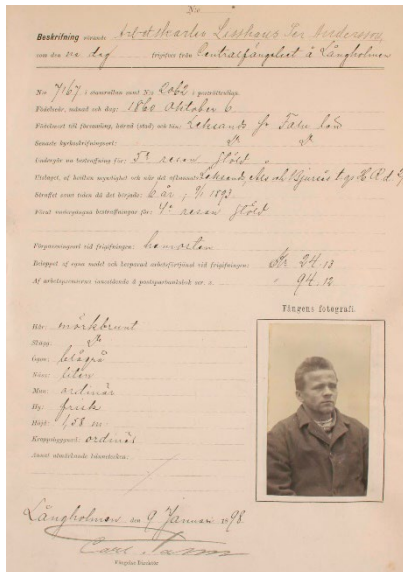 No
Beskrifning rörande Arbetskarlen Lisshans Per Andersson,
som den ne dag frigifves från Centralfängelset å Långholmen
No 7167 i centrallän samt No 2062 i
Födelseår, månad och dag: 1860 Oktober 6
Födelseort till församling, härad (stad) och län: Leksands Fr Falu län
Senaste kyrkoskrifningsort: Do Do
Undergår nu bestraffning för: 5te resan stöld
Utslaget, af hvilken myndighet och när det afkunnats: Leksands, Als och Bjursås t.g. H.R. d.
Straffets tid när det började: 6 år, 9/1 1893.
Förut undergångna bestraffningar för: 4e resan stöld
Föregifvet ort vid frigifningen: hemorten
Beloppet af egna medel och besparad arbetsförtjenst vid frigifningen: Kr 24 13
Af arbetspremien innestående å postsparbanksbok nr „ 94 12
Fångens fotografi.
Hår: mörkbrunt
Skägg: Do
Ögon: blågrå
Näsa: liten
Mun: ordinär
Hy: frisk
Höjd: 1,58 m
Kroppsbyggnad: ordinär
Annat utmärkande kännetecken:
Långholmen den 9 Januari 1898.
Carl